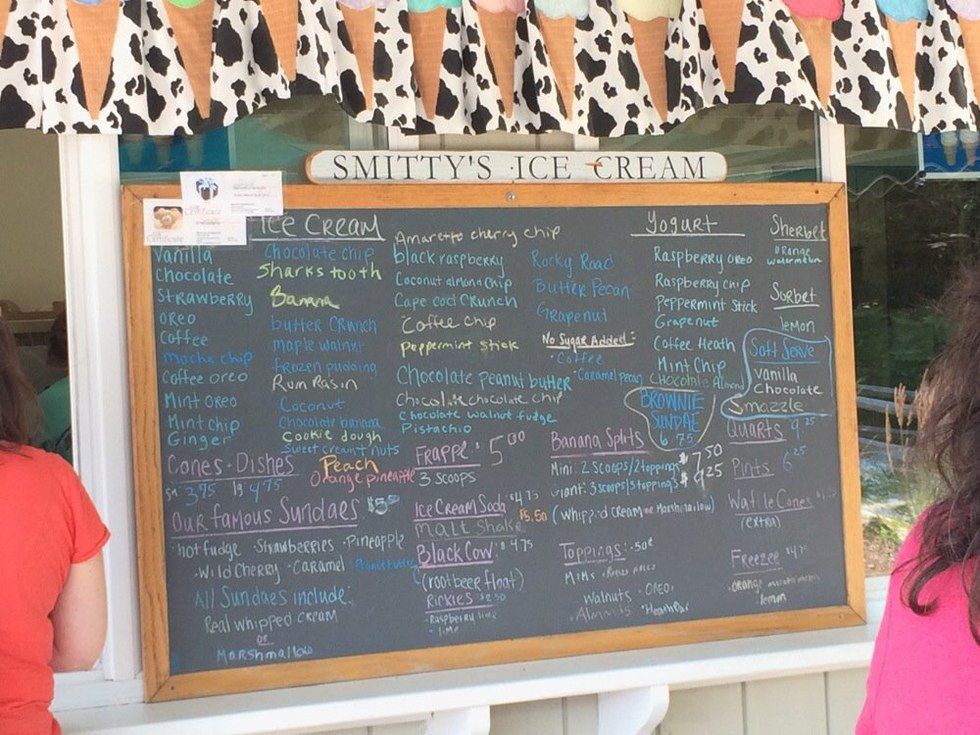 SMITTY'S ICE CREAM
Certificate
Certificate
ICE CREAM
Vanilla
Chocolate
Strawberry
Oreo
Coffee
Mocha chip
Coffee oreo
Mint Oreo
Mint chip
Ginger
Chocolate chip
Sharks tooth
Banana
butter crunch
maple walnut
frozen pudding
Rum Rasin
Coconut
Chocolate banana
Cookie dough
Sweet cream+nuts
Peach
Orange pineapple
Amaretto cherry chip
black raspberry
Coconut almond chip
Cape cod Crunch
Coffee chip
Peppermint stick
Chocolate peanut butter
Chocolate chocolate chip
Chocolate walnut fudge
Pistachio
Rocky Road
Butter Pecan
Grapenut
No Sugar Added:
Coffee
Caramel pecan
Yogurt
Raspberry oreo
Raspberry chip
Peppermint stick
Grapenut
Coffee Heath
Mint Chip
Chocolate Almond
BROWNIE
SUNDAE
6.75
Sherbet
orange
watermelon
Sorbet
lemon
Soft Serve
Vanilla
Chocolate
Smazzle
Cones - Dishes
sm 3.75 lg 4.75
Our famous Sundaes $5.50
hot fudge · Strawberries · Pineapple
· Wild Cherry · Caramel Peanut butter
All Sundaes include:
Real whipped cream
or
Marshmallow
Frappe $5.00
3 scoops
Ice Cream Soda $4.75
Malt Shake $5.50
Black Cow $4.75
(root beer float)
Rickies $2.50
· Raspberry lime
· lime
Banana Splits
Mini: 2 scoops/2 toppings $7.50
Giant: 3 scoops/3 toppings $9.25
(whipped cream or Marshmallow)
Toppings: .50¢
M+Ms
Walnuts · Oreo
Almonds · Heath bar
Quarts 9.25
Pints 6.25
Waffle Cones
(extra)
Freezee $4.75
orange
lemon